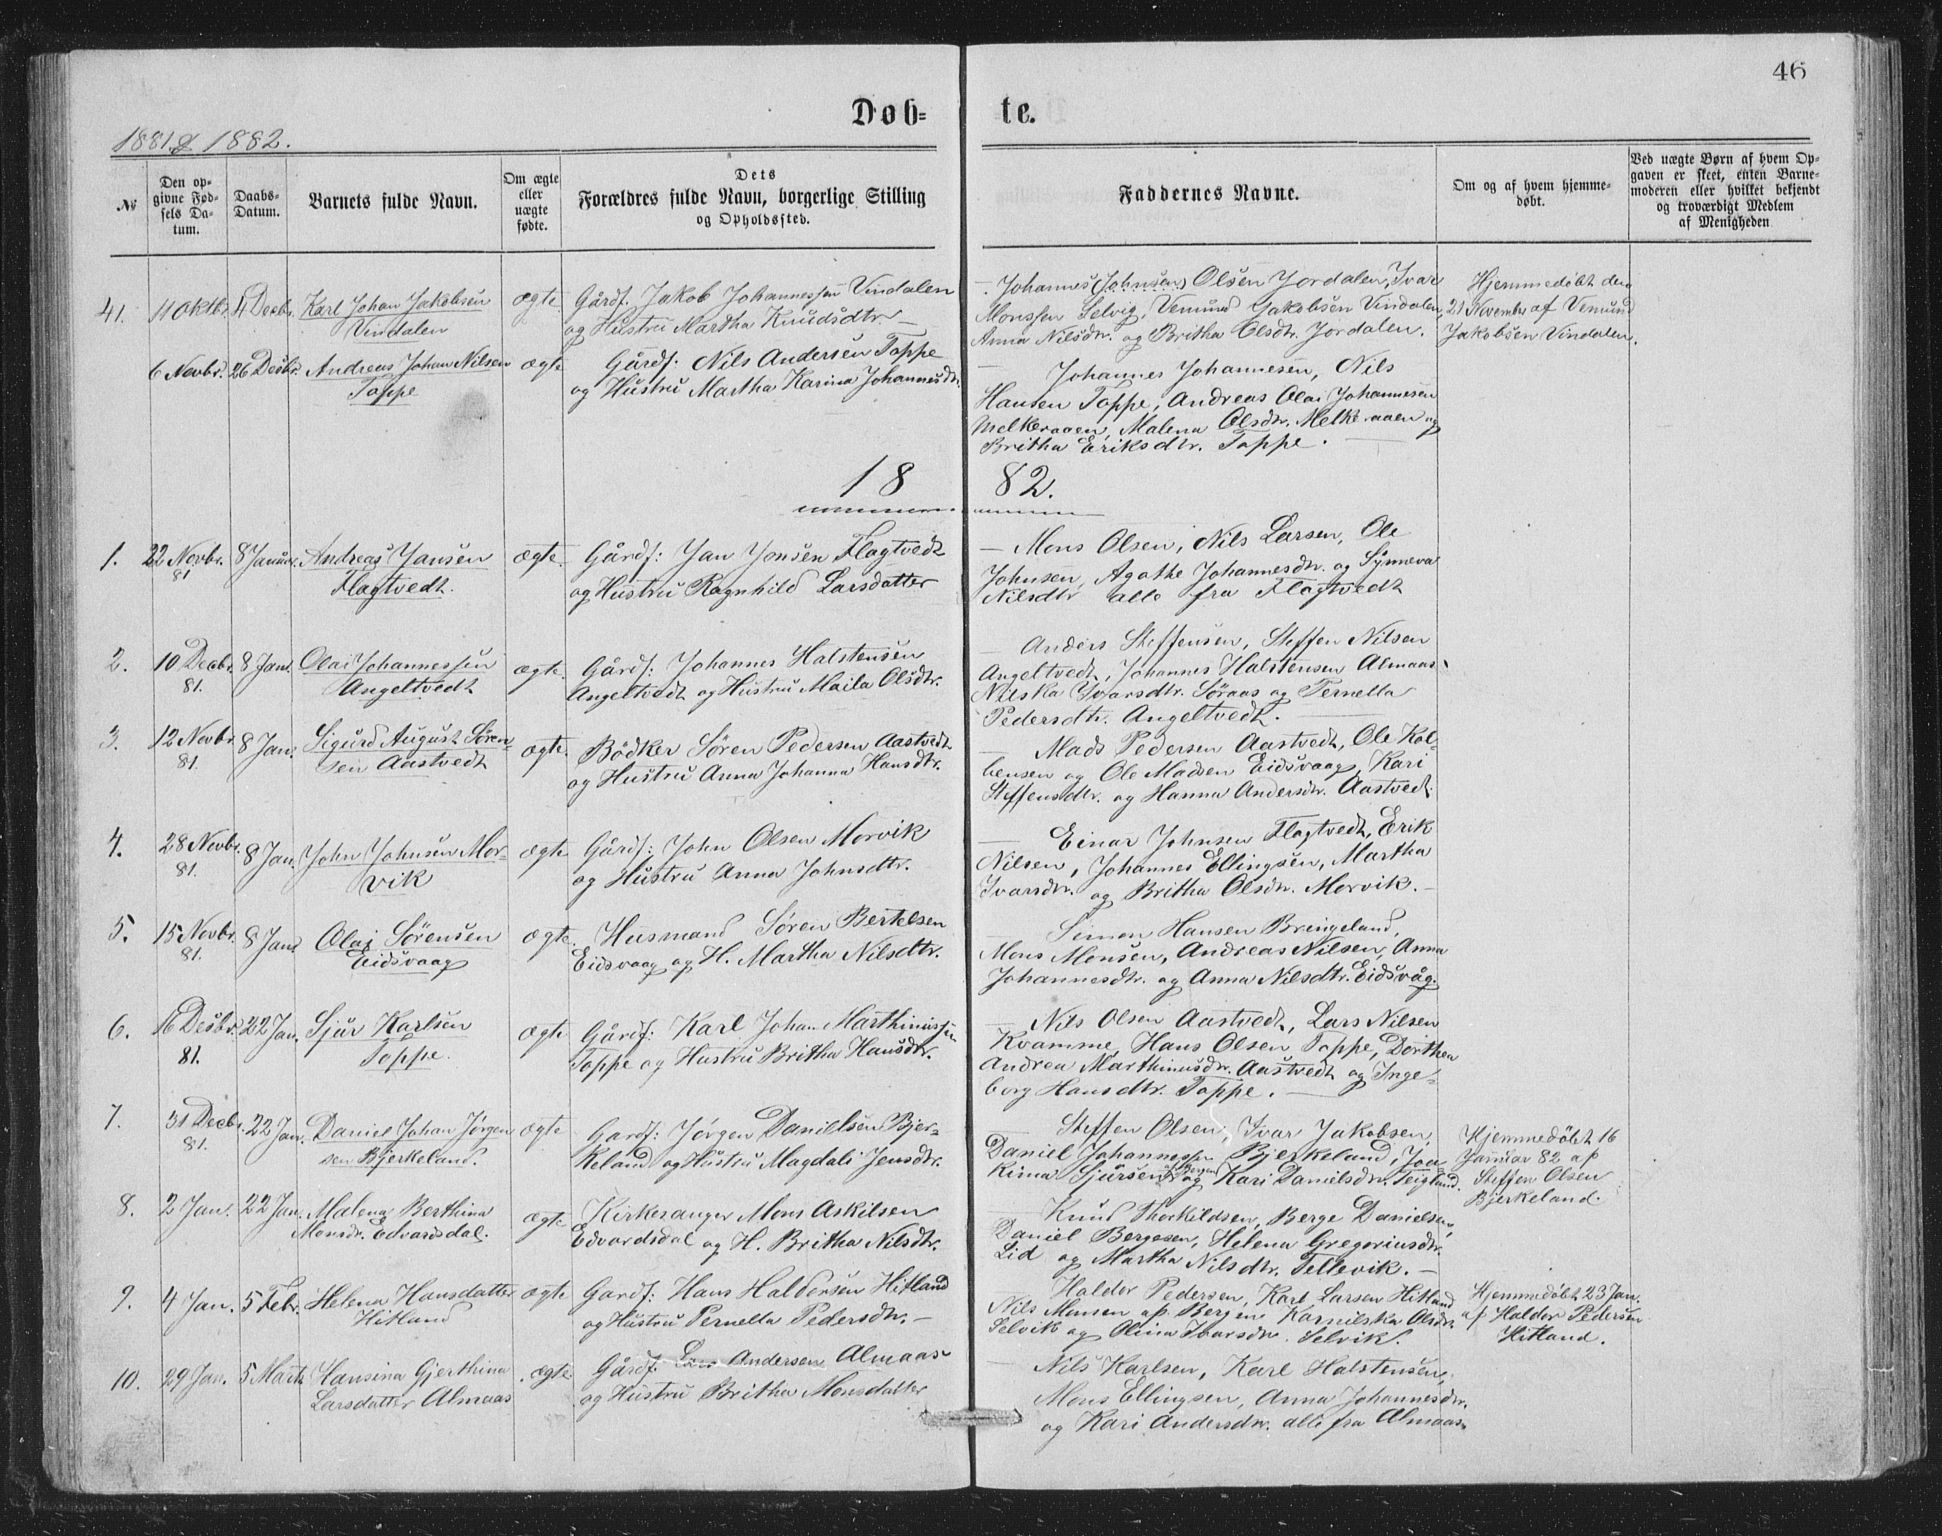 46
Døb= te.
1881 & 1882.
№
Den op-
givne Fød-
sels Da-
tum.
Daabs-
Datum.
Barnets fulde Navn.
Om ægte
eller
uægte
fødte.
Dets
Forældres fulde Navn, borgerlige Stilling
og Opholdssted.
Faddernes Navne.
Om og af hvem hjemme-
døbt.
Ved uægte Børn af hvem Op-
gaven er skeet, enten Barne-
moderen eller hvilket bekjendt
og troværdigt Medlem
af Menigheden
41. 11 Oktbr. 4 Decbr. Karl Johan Jakobsen
Vindalen
ægte
Gårdf. Jakob Johannessen Vindalen
og Hustru Martha Knudsdtr. —
Johannes (Johnsen) Olsen Jordalen, Ivar
Monssen Selvig, Vemund Jakobsen Vindalen,
Anna Nilsdtr. og Britha Olsdtr. Jordalen.
Hjemmedøbt den
21 November af Vemund
Jakobsen Vindalen.
6 Novbr. 26 Desbr. Andreas Johan Nilsen
Toppe
ægte
Gårdf: Nils Andersen Toppe
og Hustru Martha Karina Johannesdtr.
Johannes Johannesen, Nils
Hansen Toppe, Andreas Olai Johannesen
Melkeraaen, Malena Olsdtr. Melkeraaen og
Britha Eriksdtr. Toppe. —
18 82.
1. 22 Novbr. 81 8 Januar. Andreas Jansen
Flagtvedt.
ægte.
Gårdf: Jan Jonsen Flagtvedt
og Hustru Ragnhild Larsdatter
— Mons Olsen, Nils Larsen, Ole
Johnsen, Agathe Johannesdtr. og Synneva
Nilsdtr alle fra Flagtvedt
2. 10 Decbr. 81. 8 Jan. Olai Johannessen
Angeltvedt
ægte.
Gårdf: Johannes Halstensen
Angeltvedt og Hustru Maila Olsdtr.
— Anders Steffensen, Steffen Nilsen
Angeltvedt, Johannes Halstensen Almaas
Nilska Ivarsdtr. Søraas og Pernella
Pedersdtr. Angeltvedt. —
3. 12 Novbr 81. 8 Jan. Sigurd August Søren-
sen Aastvedt
ægte
Bödker Søren Pedersen Aastvedt
og Hustru Anna Johanna Hansdtr.
— Mads Pedersen Aastvedt, Ole Kol-
bensen og Ole Madsen Eidsvaag, Kari
Steffensdtr. og Hanna Andersdtr. Aastvedt.
4. 28 Novbr. 81. 8 Jan. John Johnsen Mor-
vik
ægte
Gårdf: John Olsen Morvik
og Hustru Anna Johnsdtr.
— Einar Johnsen Flagtvedt, Erik
Nilsen, Johannes Ellingsen, Martha
Ivarsdtr. og Britha Olsdtr. Morvik. —
5. 15 Novbr. 81. 8 Jan. Olai Sørensen
Eidsvaag
ægte.
Husmand Søren Bertelsen
Eidsvaag og H. Martha Nilsdtr.
— Simon Hansen Breingeland,
Mons Monsen, Andreas Nilsen, Anna
Johannesdtr. og Anna Nilsdtr. Eidsvåg.
6. 16 Desbr. 81. 22 Jan. Sjur Karlsen
Toppe.
ægte
Gårdf: Karl Johan Marthinussen
Toppe og Hustru Britha Hansdtr.
— Nils Olsen Aastvedt, Lars Nilsen
Kvamme, Hans Olsen Toppe, Dorthea
Andrea Marthinusdtr. Aastvedt og Inge-
borg Hansdtr. Toppe. —
7. 31 Decbr. 81. 22 Jan. Daniel Johan Jørgen
sen Bjerkeland.
ægte
Gardf: Jørgen Danielsen Bjer-
keland og Hustru Magdali Jensdtr.
Steffen Olsen, Ivar Jakobsen,
Daniel Johannessen Bjerkeland, Joa
kima Sjursen af Bergen og Kari Danielsdtr. Teigland.
Hjemmedøbt 16
Januar 82 af
Steffen Olsen
Bjerkeland.
8. 2 Jan. 22 Jan. Malena Berthina
Monsdr. Edvardsdal.
ægte
Kirkesanger Mons Askilsen
Edvardsdal og H. Britha Nilsdtr.
— Knud Thorkildsen, Berge Danielsen,
Daniel Bergesen, Helena Gregoriusdtr.
Lid og Martha Nilsdtr. Tellevik. —
9. 4 Jan. 5 Febr. Helena Hansdatter
Hitland
ægte
Gardf: Hans Haldorsen Hitland
og Hustru Pernella Pedersdtr. —
Haldor Pedersen, Karl Larsen Hitland
Nils Monsen af Bergen Karnilska Olsdtr.
Selvik og Olina Ivarsdtr. Selvik.
Hjemmedøbt 23 Jan.
af Haldor Pedersen
Hitland.
10. 29 Jan. 5 Marts Hansina Gjerthina
Larsdatter Almaas
ægte
Gårdf. Lars Andersen Almaas
og Hustru Britha Monsdatter
— Nils Karlsen, Karl Halstensen,
Mons Ellingsen, Anna Johannesdtr.
og Kari Andersdtr. alle fra Almaas.